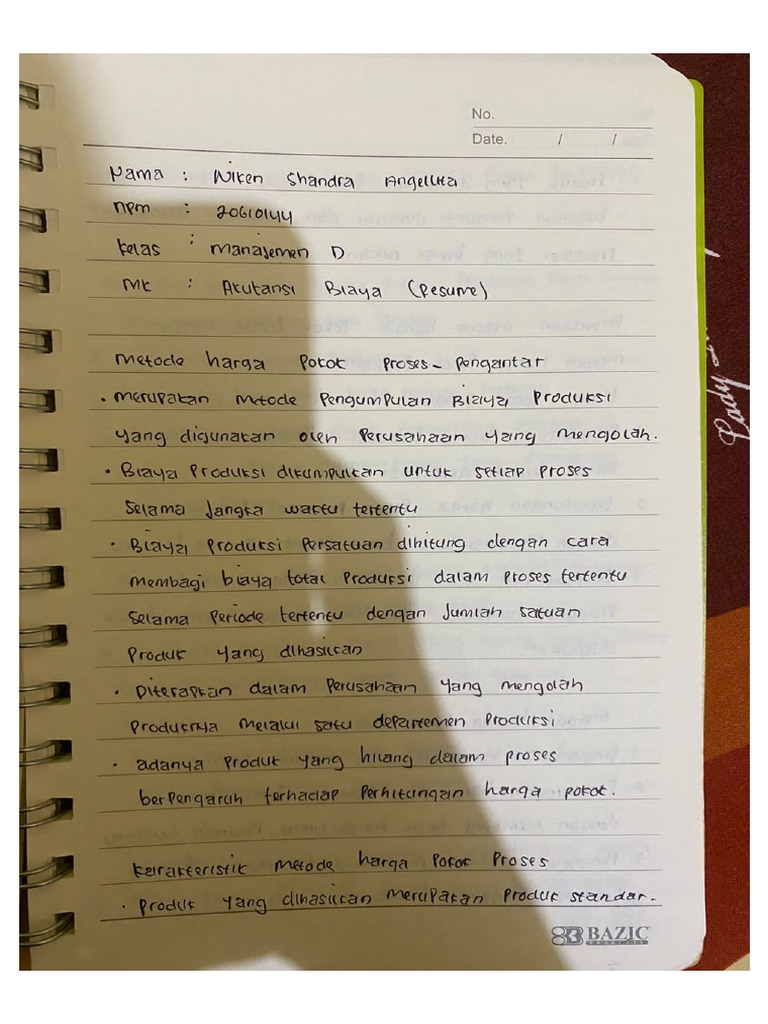 No.
Date. / /
Nama : Niken Shandra Angelita
npm : 20610144
Kelas : Manajemen D
MK : Akutansi Biaya (Resume)
Metode harga Pokok Proses - Pengantar
• Merupakan Metode Pengumpulan Biaya Produksi
yang digunakan oleh Perusahaan yang mengolah.
• Biaya Produksi dikumpulkan untuk setiap proses
Selama Jangka waktu tertentu
• Biaya Produksi Persatuan dihitung dengan cara
membagi biaya total Produksi dalam proses tertentu
Selama Periode tertentu dengan Jumlah satuan
Produk yang dihasilkan
• Diterapkan dalam Perusahaan yang mengolah
Produknya melalui satu departemen Produksi
• adanya Produk yang hilang dalam proses
berpengaruh terhadap Perhitungan harga pokok.
Karakteristik Metode harga Pokok Proses
• Produk yang dihasilkan merupakan Produk standar.
BAZIC
PRODUCTS
Lady